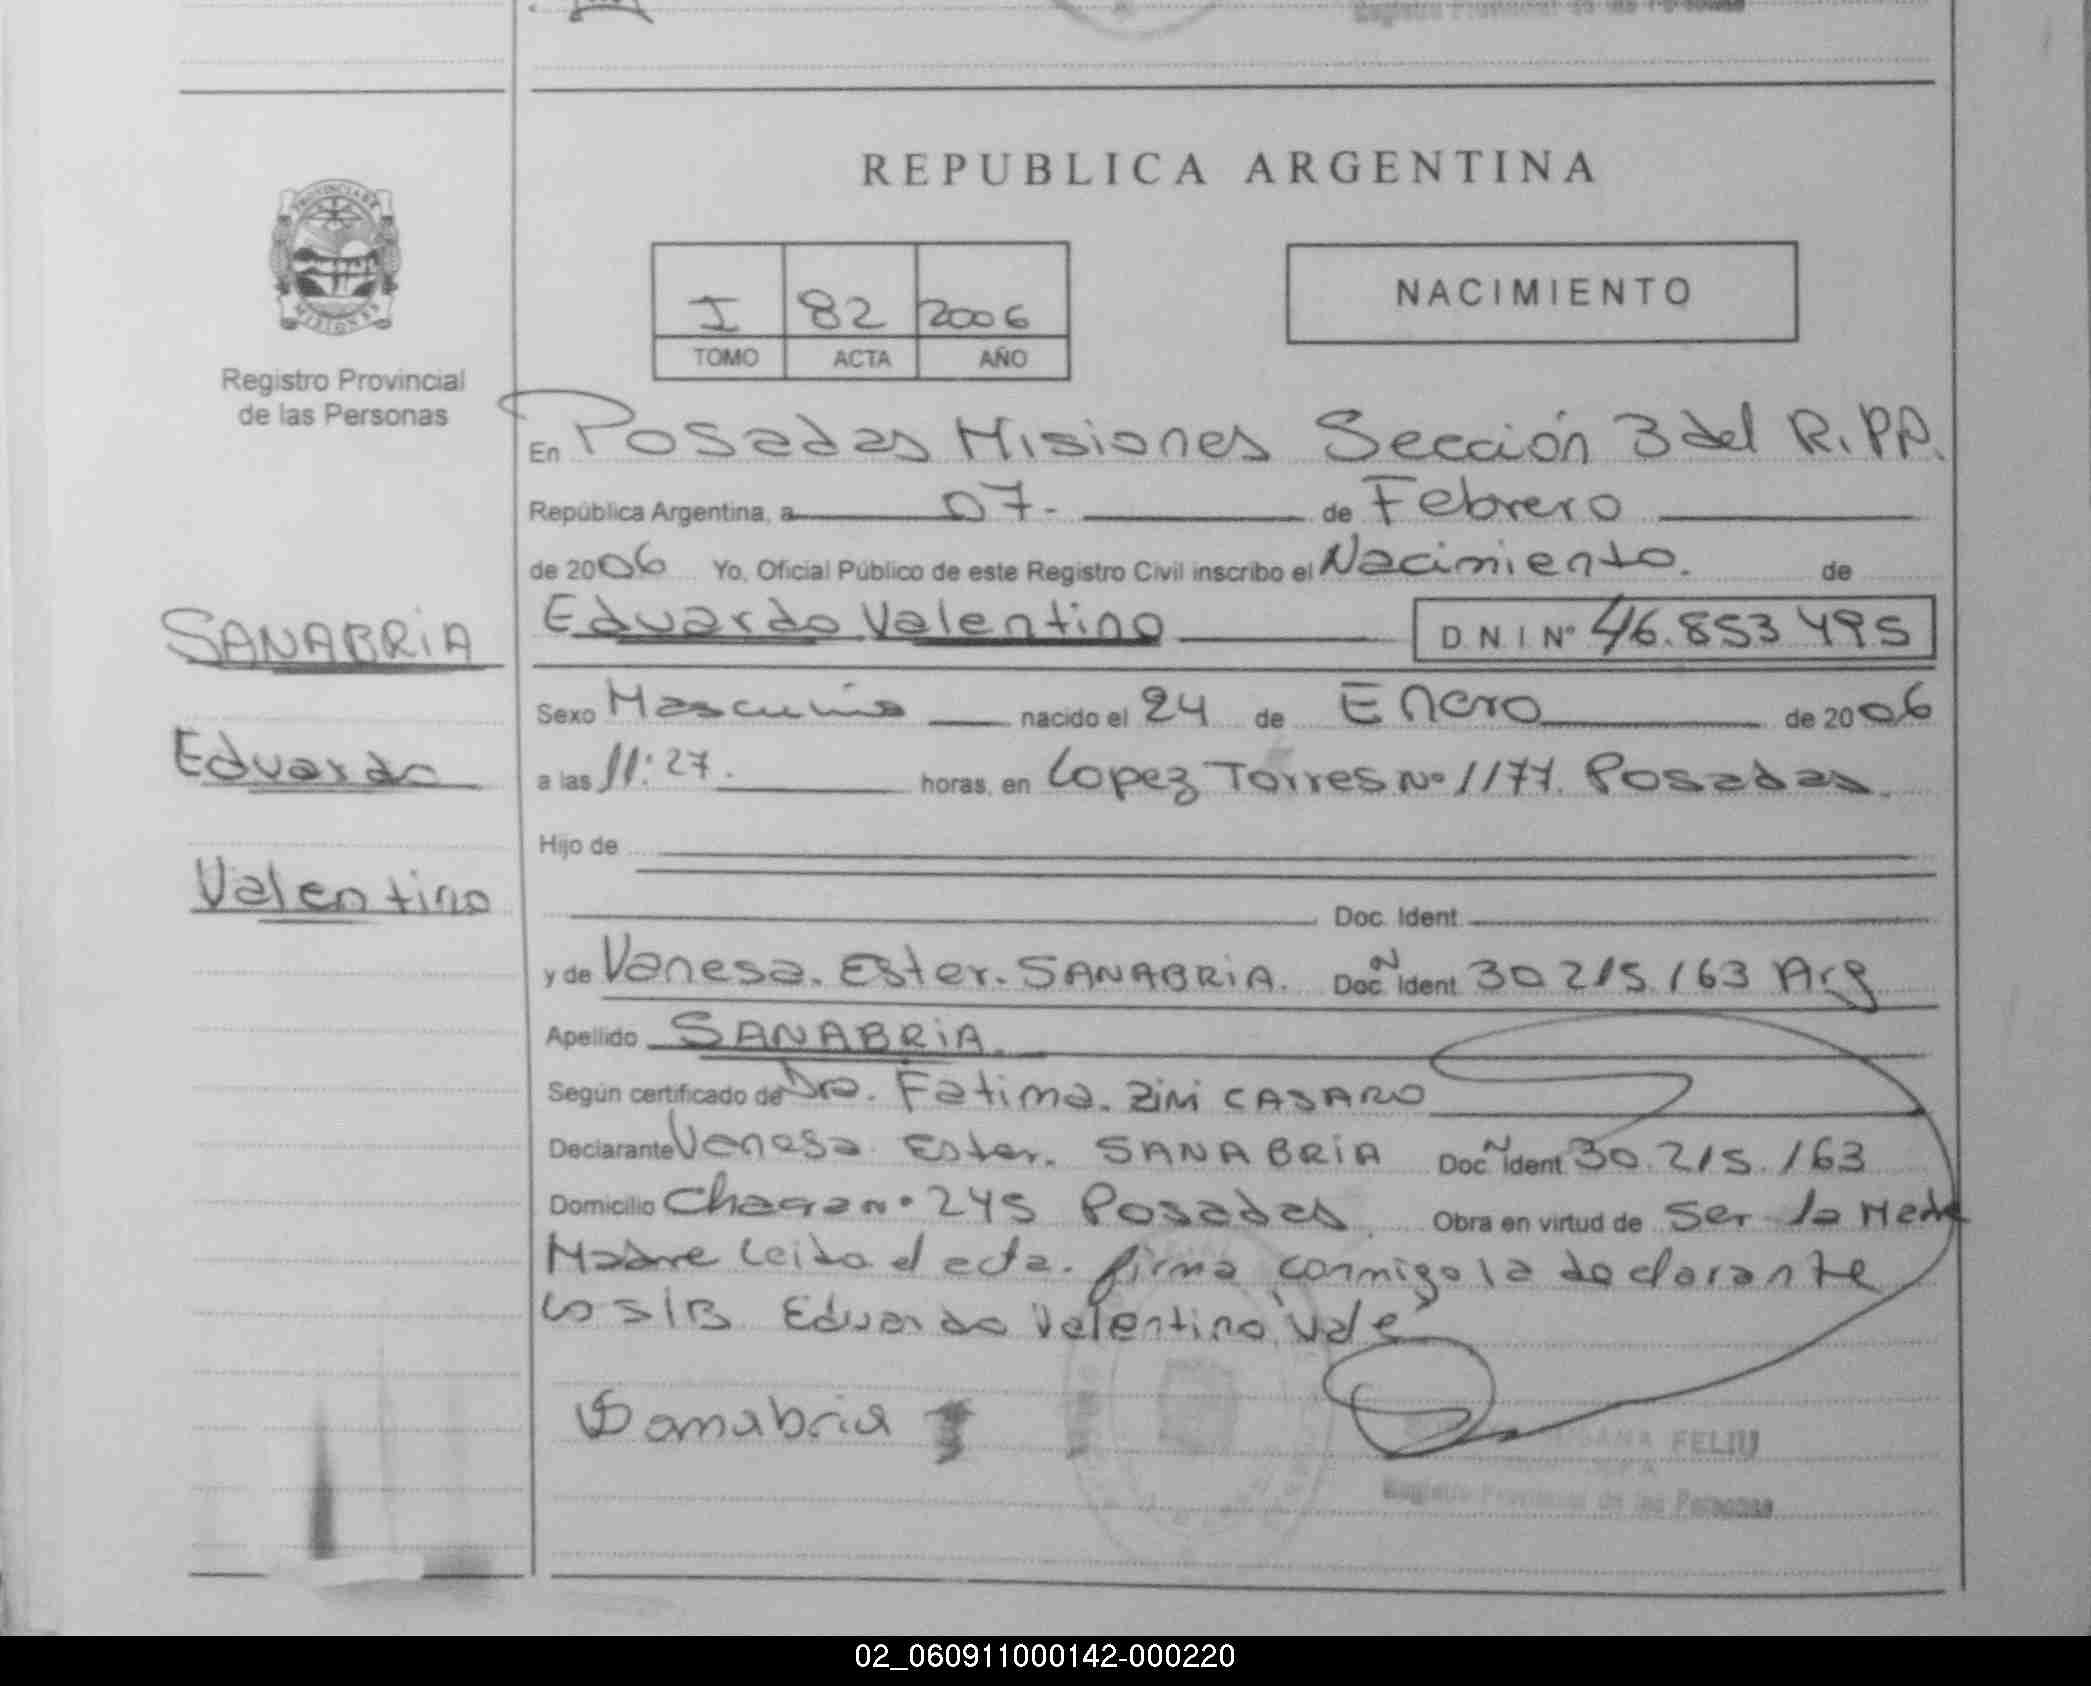 Registro Provincial de las Personas
PROVINCIA DE
MISIONES
Registro Provincial
de las Personas
SANABRIA
Eduardo
Valentino
REPUBLICA ARGENTINA
I 82 2006
TOMO ACTA AÑO
NACIMIENTO
En Posadas Misiones Sección 3 del R.P.P.
República Argentina, a 07. de Febrero
de 2006 Yo, Oficial Público de este Registro Civil inscribo el Nacimiento. de
Eduardo Valentino D.N.I. Nº 46.853 495
Sexo Masculino nacido el 24 de Enero de 2006
a las 11:27. horas, en Lopez Torres Nº 1177. Posadas.
Hijo de
Doc. Ident.
y de Vanesa. Ester. SANABRIA. Doc. N Ident. 30 215.163 Arg
Apellido SANABRIA.
Según certificado de Dra. Fatima. ZINI CASARO
Declarante Vanesa Ester. SANABRIA Doc. N Ident. 30.215.163
Domicilio Nº 245 Posadas Obra en virtud de ser la
Madre Leida el acta. firma conmigo la declarante
S/B Eduardo Valentino Vale
Sanabria
SUSANA FELIU
Registro Provincial de las Personas
02_060911000142-000220